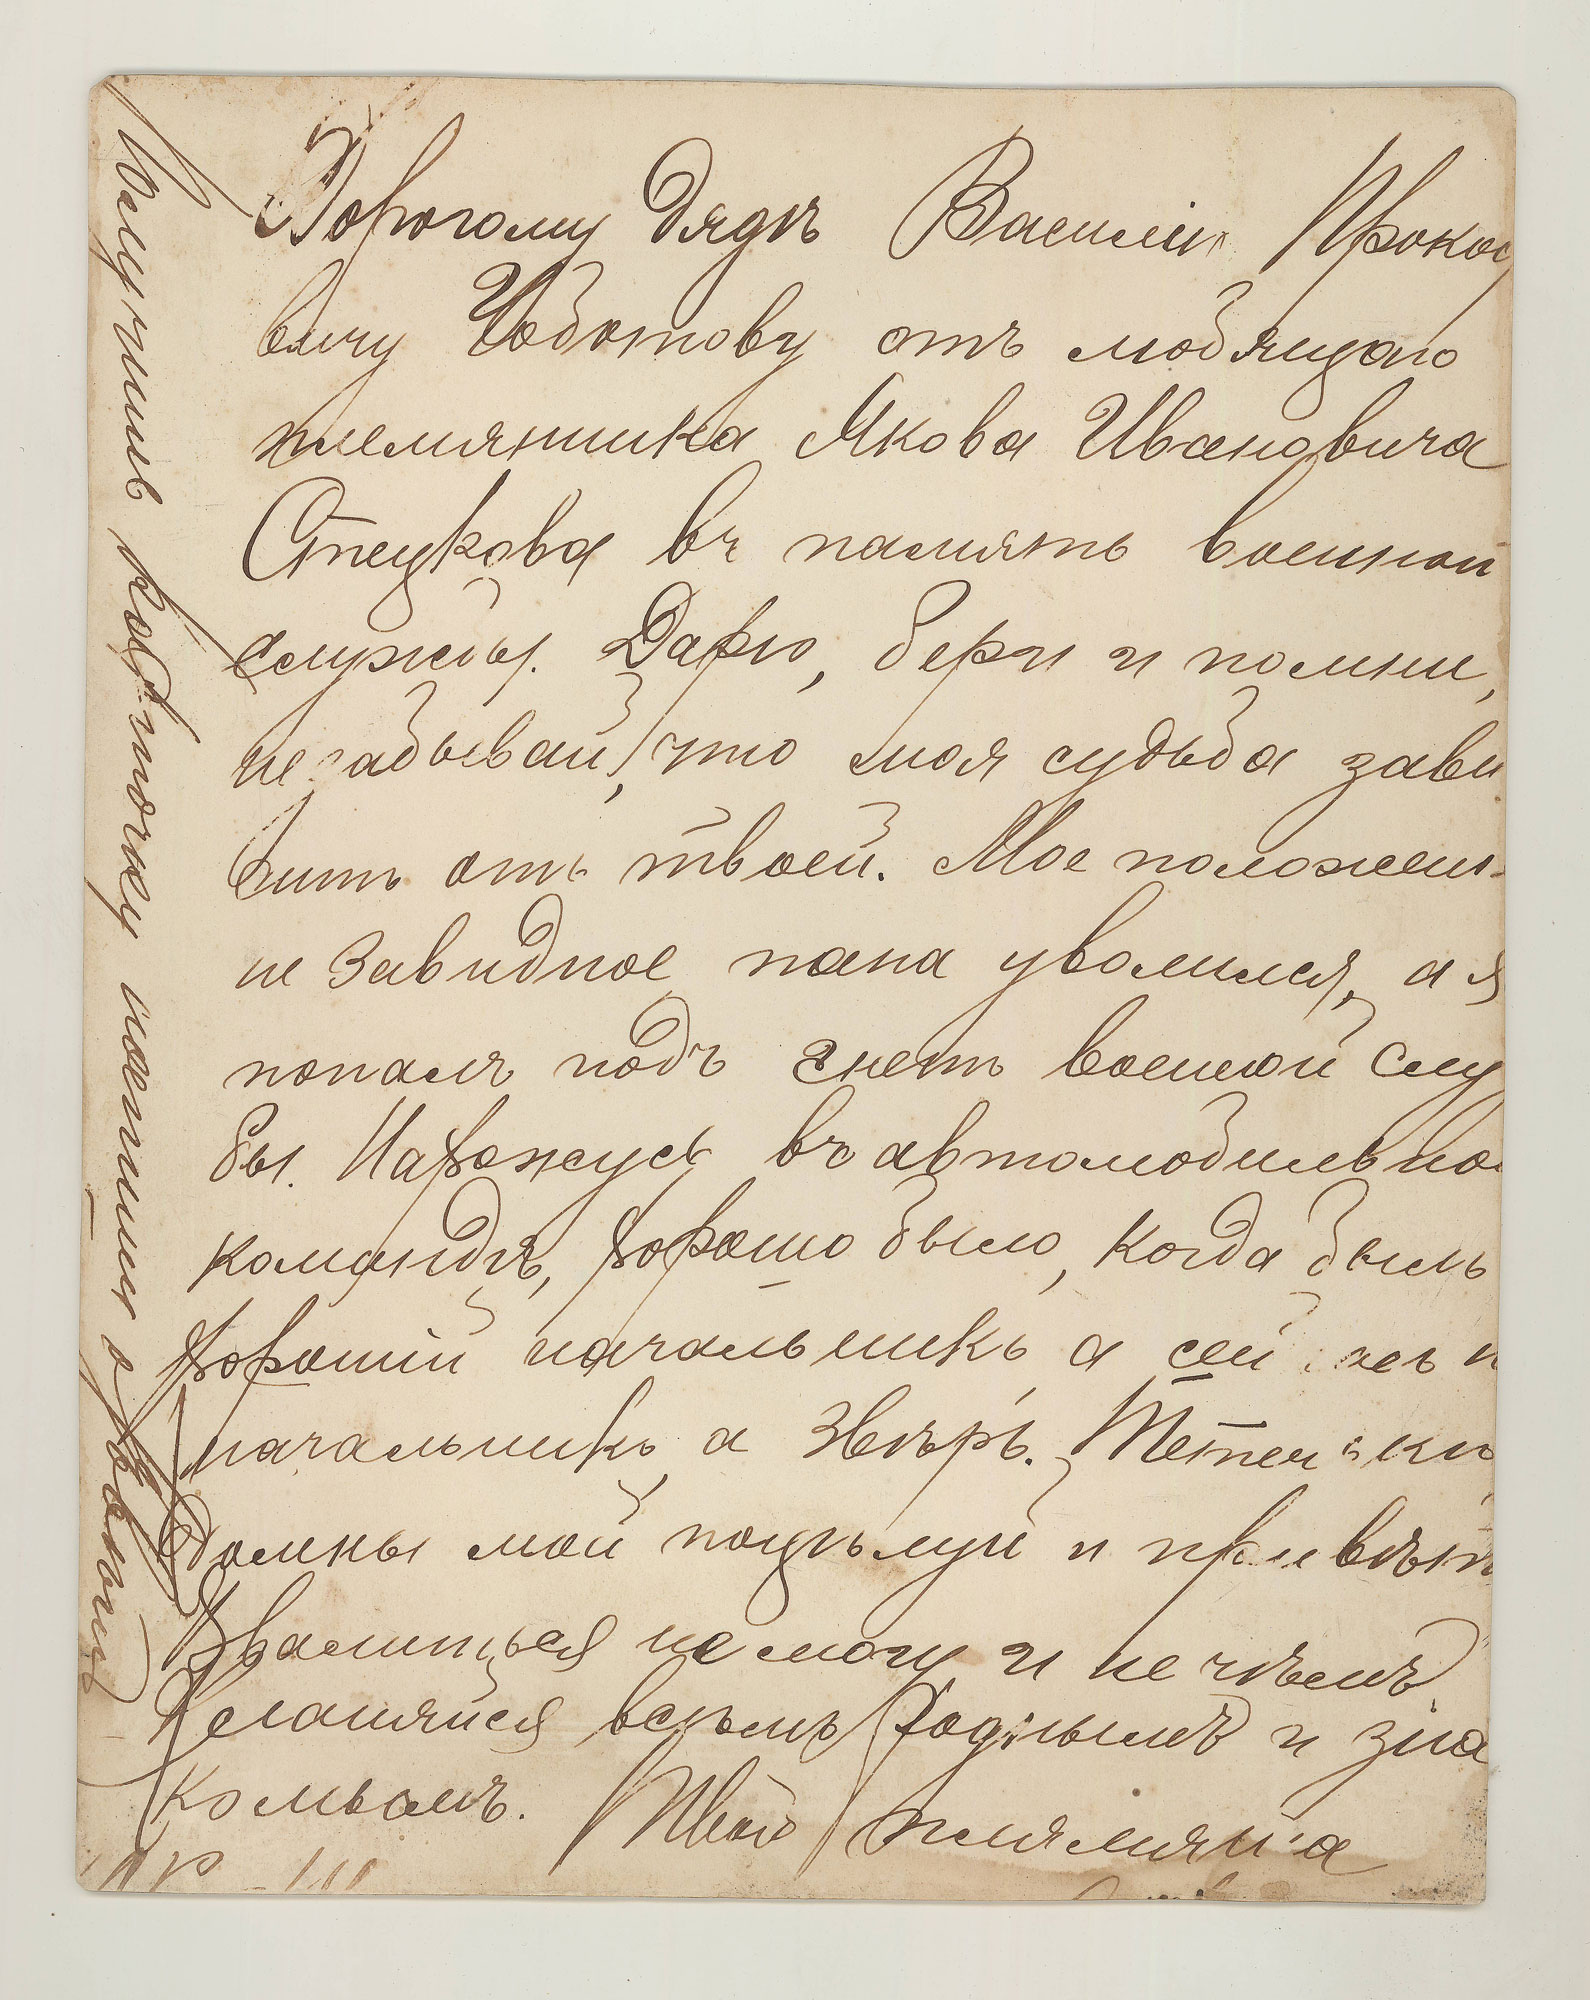 Дорогому дядѣ Василiю Прокоф
вичу Чоботову отъ любящаго
племянника Якова Ивановича
Стецкова въ память военной
службы. Дарю, бери и помни,
не забывай, что моя судьба зави
ситъ отъ твоей. Мое положен
не завидное папа уволился, а я
попалъ подъ гнетъ военной слу
бы. Нахожусь въ автомобильно
командѣ, хорошо было, когда былъ
хорошій начальникъ а сей часъ н
начальникъ а звѣрь. Тетеньки
Домны мой поцѣлуй и привѣтъ
Хвалиться не могу и не чѣмъ
Кланяйся всѣмъ роднымъ и зна
комымъ. Твой племянн а
получишь карточку напиши